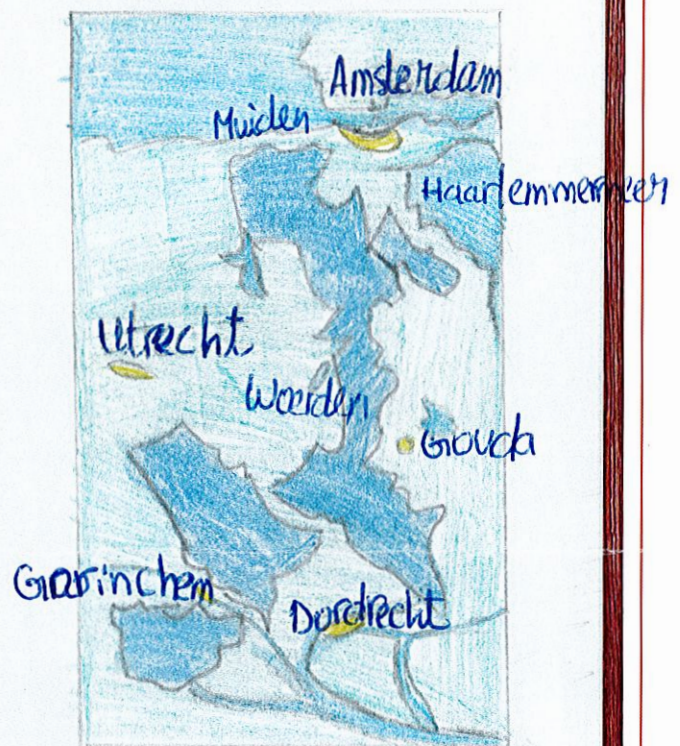 Amsterdam
Muiden
Haarlemmermeer
Utrecht
Woerden
Gouda
Gorinchem
Dordrecht